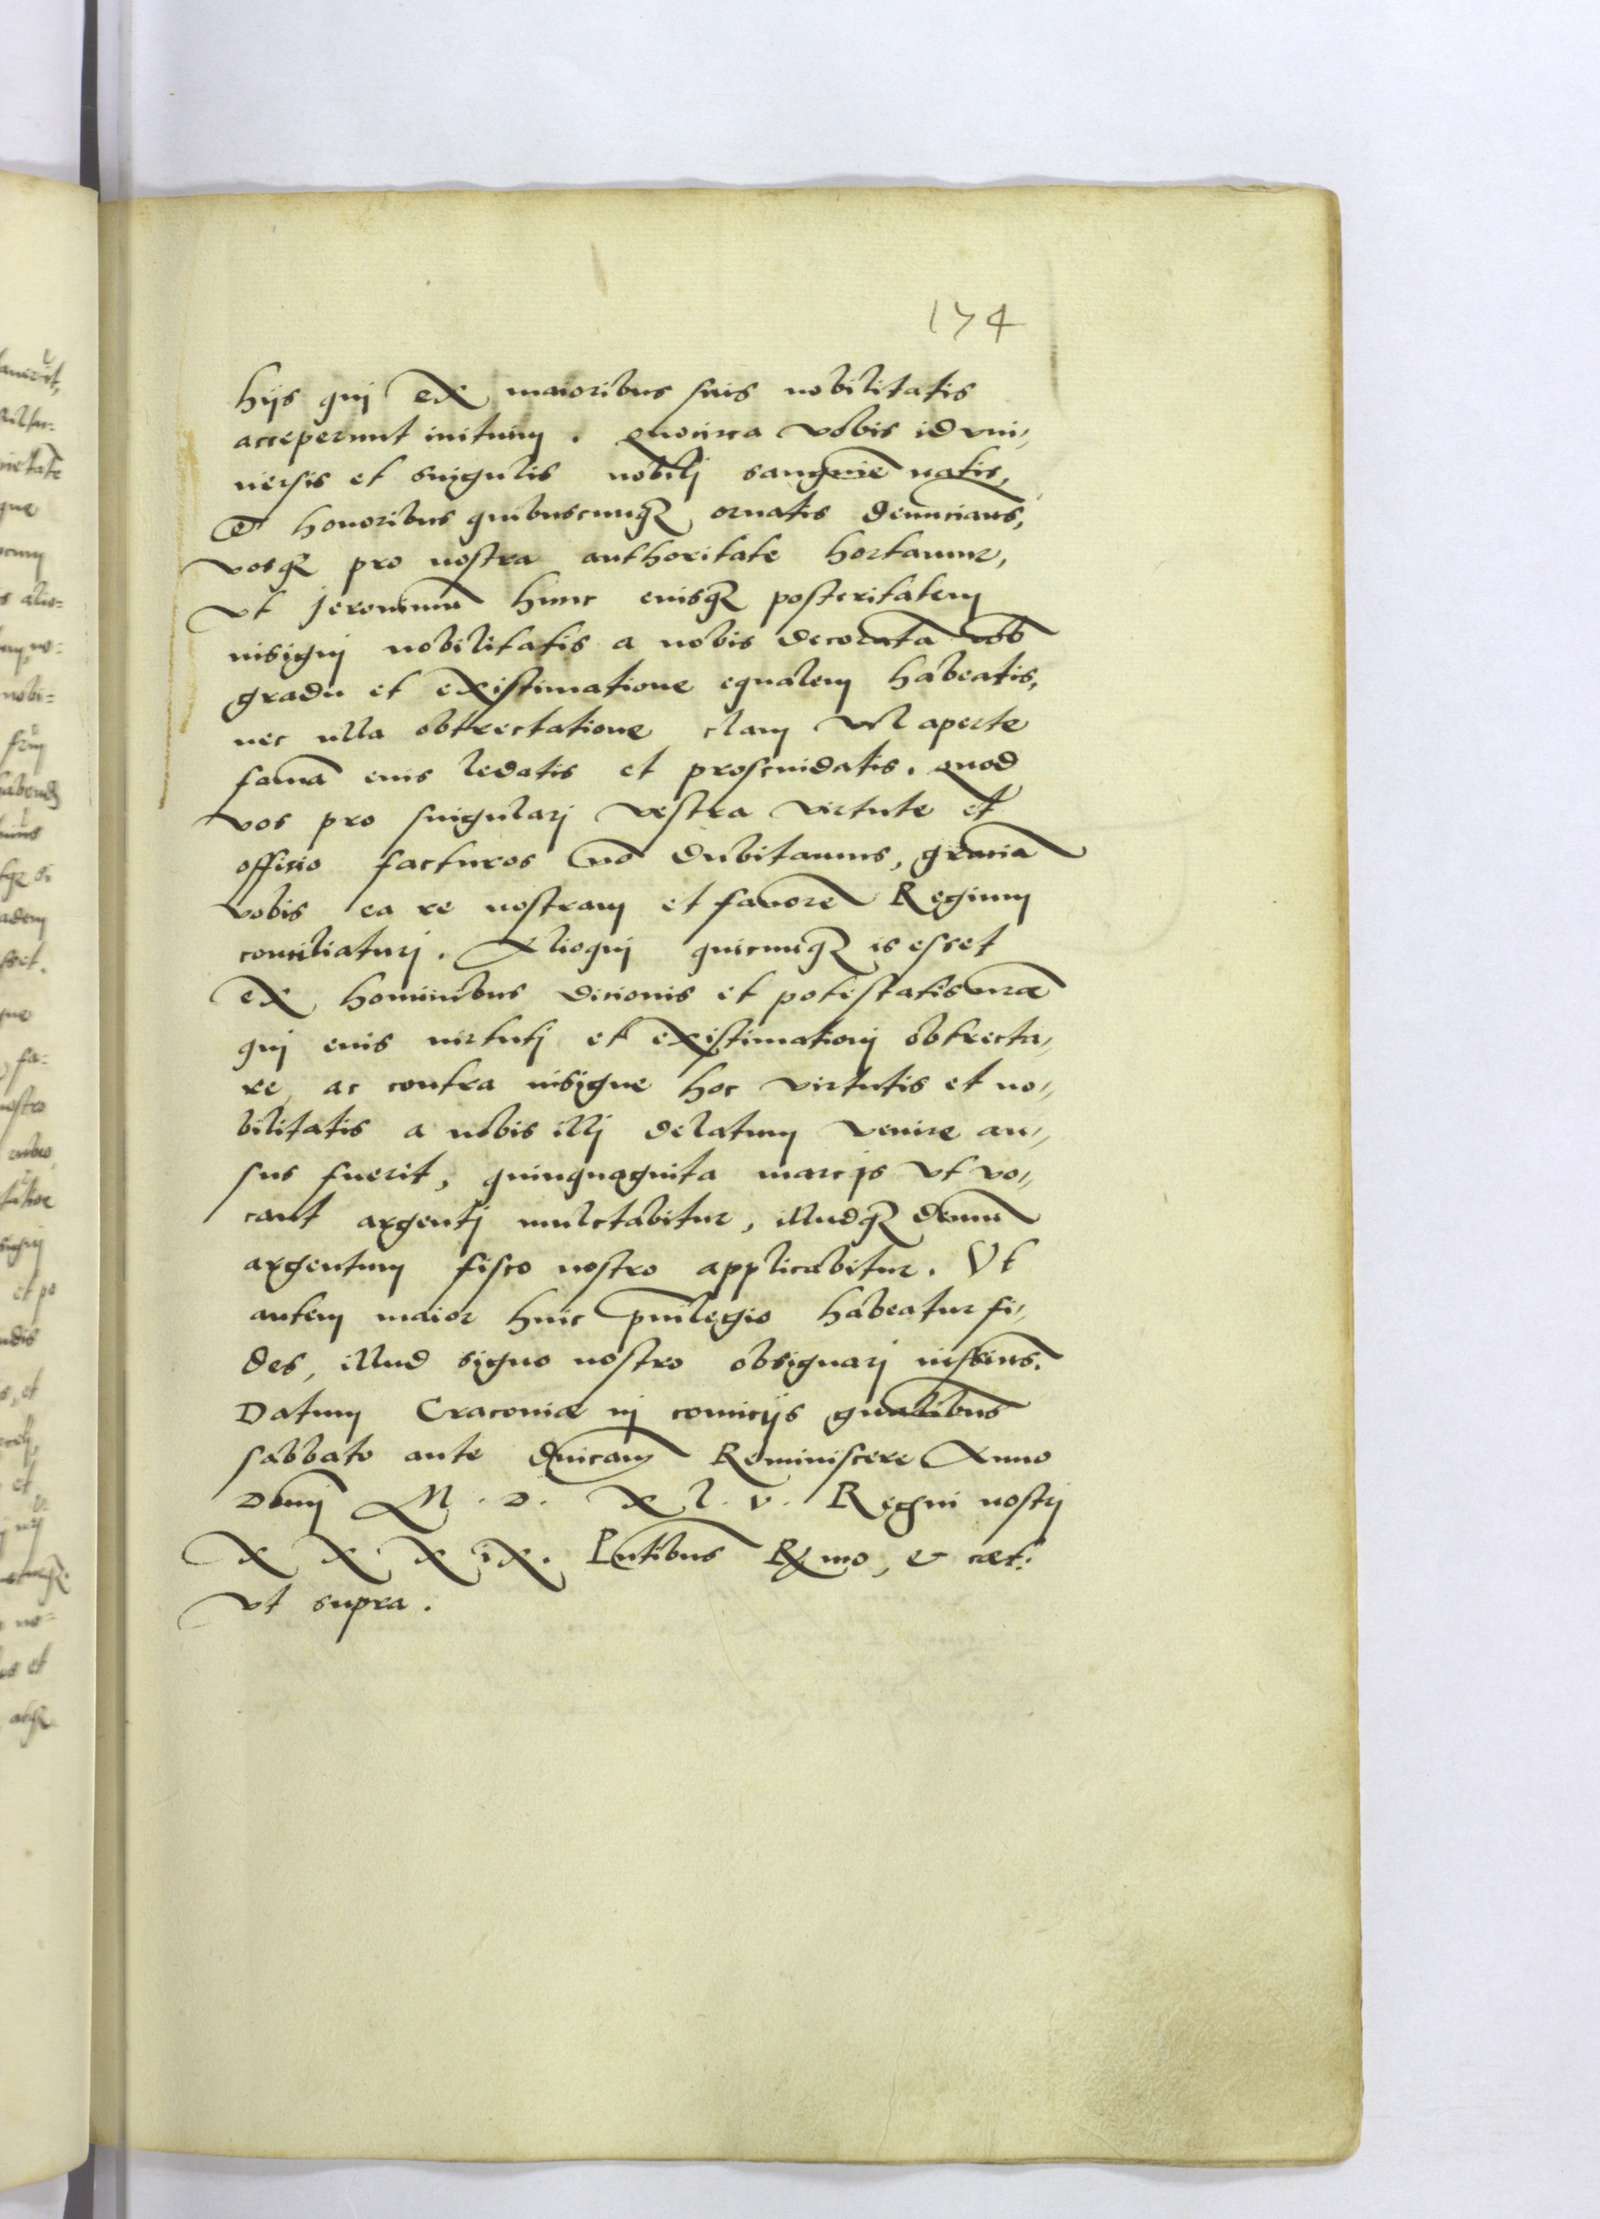 174
hijs quj ex maioribus suis nobilitatis
acceperunt initium. Quocirca vobis id vni,,
uersis et singulis nobilj sanguine natis,
& honoribus quibuscunq₃ ornatis denuncians,
vosq₃ pro nostra authoritate hortamur,
vt Jeronimū hunc eiusq₃ posteritatem
insignj nobilitatis a nobis decoratā vob
gradu et existimatione equalem habeatis,
nec ulla obtrectatione clam vel aperte
famā eius ledatis et proscindatis. Quod
vos pro singularj vestra virtute et
officio facturos nō dubitamus, graciā
vobis ea re nostram et favorē Regium
conciliaturj. Alioquj quicunq₃ is esset
ex hominibus dicionis et potestatis nræ
quj eius uirtutj et existimationj obtrecta,,
re, ac contra insigne hoc virtutis et no,,
bilitatis a nobis illj delatum venire au,,
sus fuerit, quinquaginta marcis vt vo,,
cant argentj mulctabitur, illudq₃ demū
argentum fisco nostro applicabitur. Vt
autem maior huic priuilegio habeatur fi,,
des, illud signo nostro obsignarj iussims.
Datum Cracouiæ in comicijs gnalibus
sabbato ante dnicam Reminiscere Anno
Domj M. D. XL. V. Regni nostrj
XXXIX. Pntibus Rmo, & cæt:
vt supra.